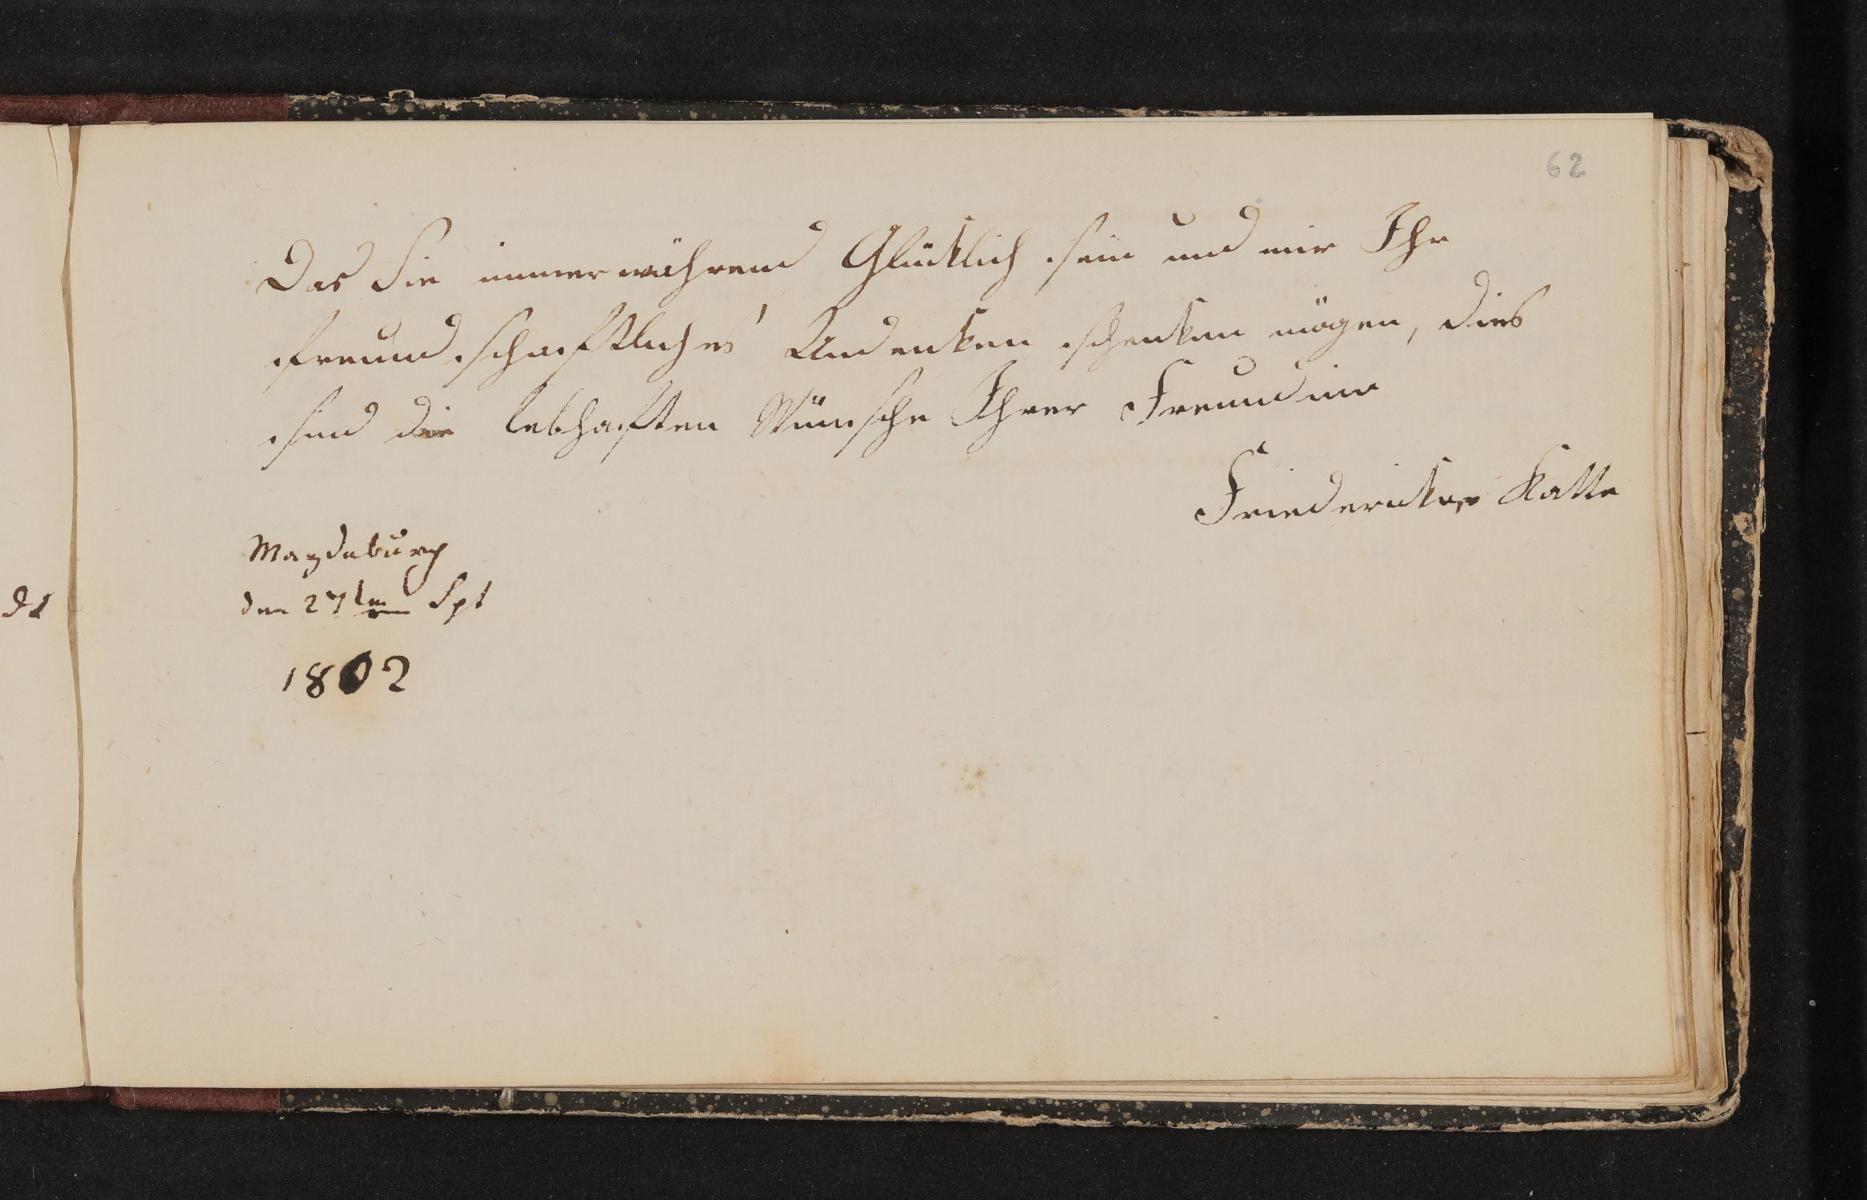 62
Das Sie immerwährend Glücklich sein und mir Ihr
freundschaftliches Andenken schenken mögen, dies
sind die lebhaften Wünsche Ihrer Freundinn
Friedericke Katte
Magdeburg
den 27ten Spt
1802